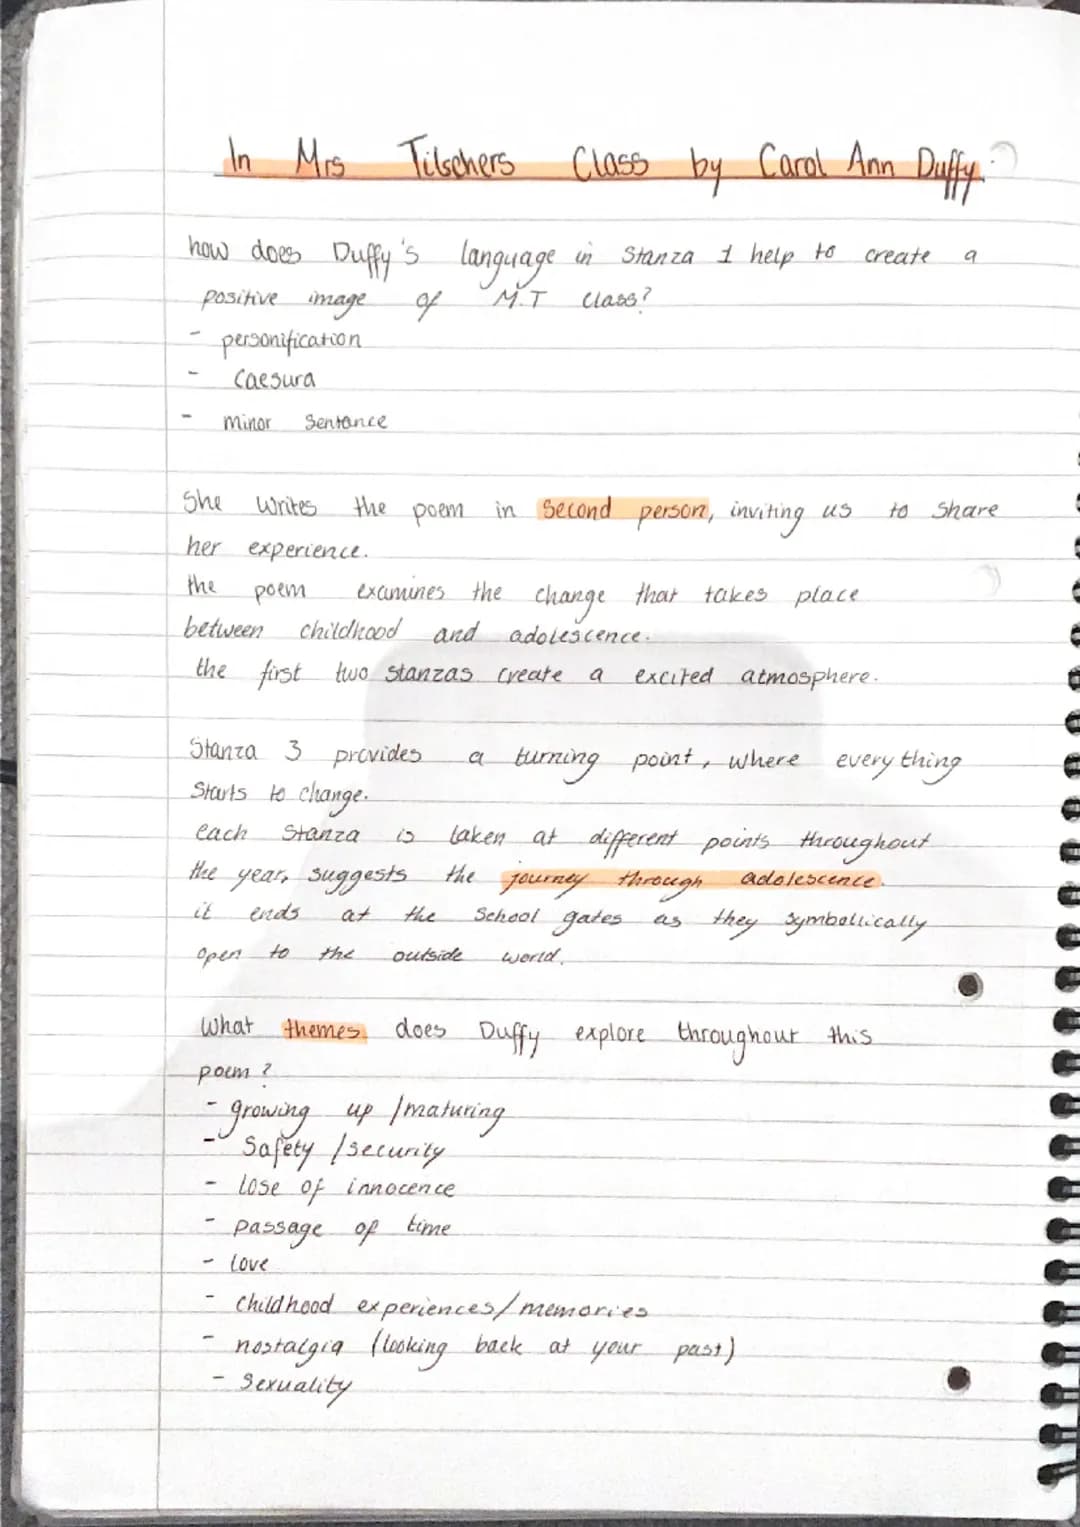 In Mrs Tilschers Class by Carol Ann Duffy.
how does Duffy's language in Stanza 1 help to create a
positive image of M.T class?
- personification
- Caesura
- minor Sentance
She writes the poem in Second person, inviting us to share
her experience.
the poem examines the change that takes place
between childhood and adolescence.
the first two stanzas create a excited atmosphere.
Stanza 3 provides a turning point, where everything
Starts to change.
each Stanza is taken at different points throughout
the year, suggests the journey through adolescence.
it ends at the School gates as they symbollically
open to the outside world.
What themes does Duffy explore throughout this
poem?
- growing up / maturing
- Safety / security
- lose of innocence
- passage of time
- love
- Childhood experiences/memories
- nostalgia (looking back at your past)
- Sexuality